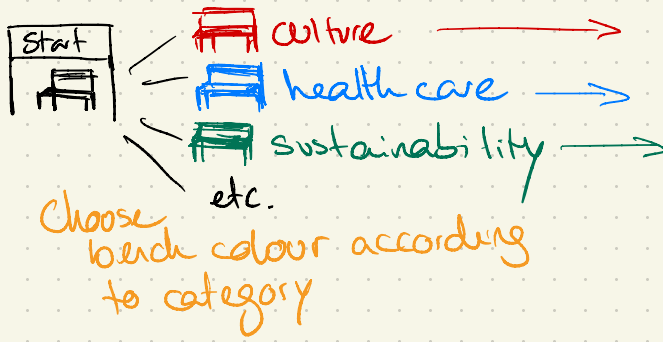 Start
culture
health care
sustainability
etc.
Choose
bench colour according
to category